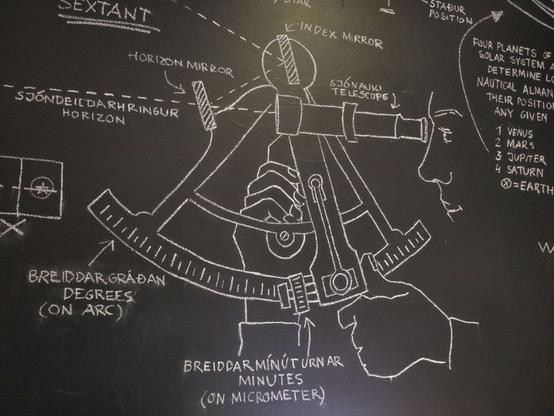 SEXTANT
STAÐUR
POSITION
INDEX MIRROR
HORIZON MIRROR
SJÓNAUKI
TELESCOPE
SJÓNDEILDARHRINGUR
HORIZON
FOUR PLANETS OF
SOLAR SYSTEM
DETERMINE
NAUTICAL ALMAN
THEIR POSITION
ANY GIVEN
1 VENUS
2 MARS
3 JUPITER
4 SATURN
⊗=EARTH
BREIDDARGRÁÐAN
DEGREES
(ON ARC)
BREIDDARMÍNÚTURNAR
MINUTES
(ON MICROMETER)